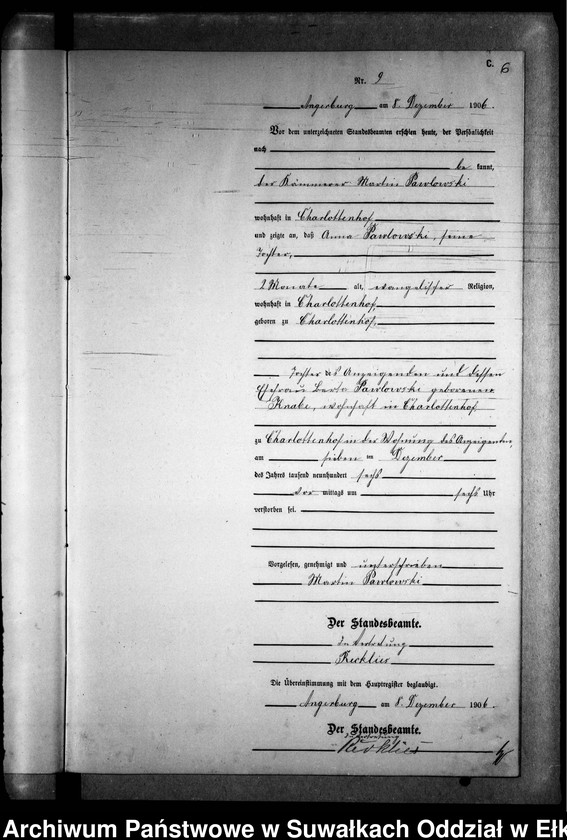 C.
6
Nr. 9
Angerburg am 8. Dezember 1906.
Vor dem unterzeichneten Standesbeamten erschien heute, der Persönlichkeit
nach
be kannt,
der Kämmerer Martin Pawlowski
wohnhaft in Charlottenhof
und zeigte an, daß Anna Pawlowski, seine
Tochter,
2 Monate alt, evangelischer Religion,
wohnhaft in Charlottenhof,
geboren zu Charlottenhof,
Tochter des Anzeigenden und dessen
Ehefrau Berta Pawlowski geborenen
Knabe, wohnhaft in Charlottenhof
zu Charlottenhof in der Wohnung des Anzeigenden,
am sieben ten Dezember
des Jahres tausend neunhundert sechs
vor mittags um sechs Uhr
verstorben sei.
Vorgelesen, genehmigt und unterschrieben
Martin Pawlowski
Der Standesbeamte.
In Vertretung
Die Übereinstimmung mit dem Hauptregister beglaubigt.
Angerburg am 8. Dezember 1906.
Der Standesbeamte.
In Vertretung
Archiwum Państwowe w Suwałkach Oddział w Ełk